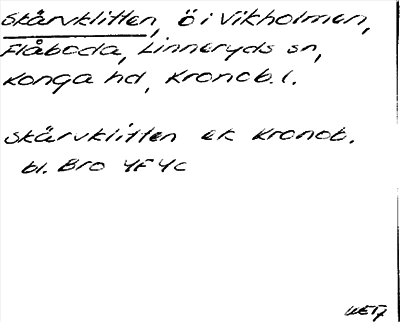 Skårvklitten, ö i Vikholmen,
Flåboda, Linneryds sn,
Konga hd, Kronob. l.
Skårvklitten ek Kronob.
bl. Bro 4F4c